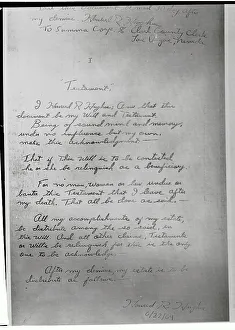 my demise Howard R. Hughes
To Summa Corp. & Clark County Clerk
Las Vegas, Nevada
3
Testament.
I Howard R. Hughes, that this
document be my Will and Testament.
Being of sound mind and memory,
under no influence but my own,
make this acknowledgement.
That if this Will is to be contested
he or she be relinquished as a beneficiary.
For no man, woman or law
the Testament that I leave after
my death. That all be done as
All my of my estate,
be distribute among the so said in
this Will. And all other Testaments
or Wills be relinquished for this is the only
one to be acknowledge.
After my demise my estate is to be
Howard R. Hughes